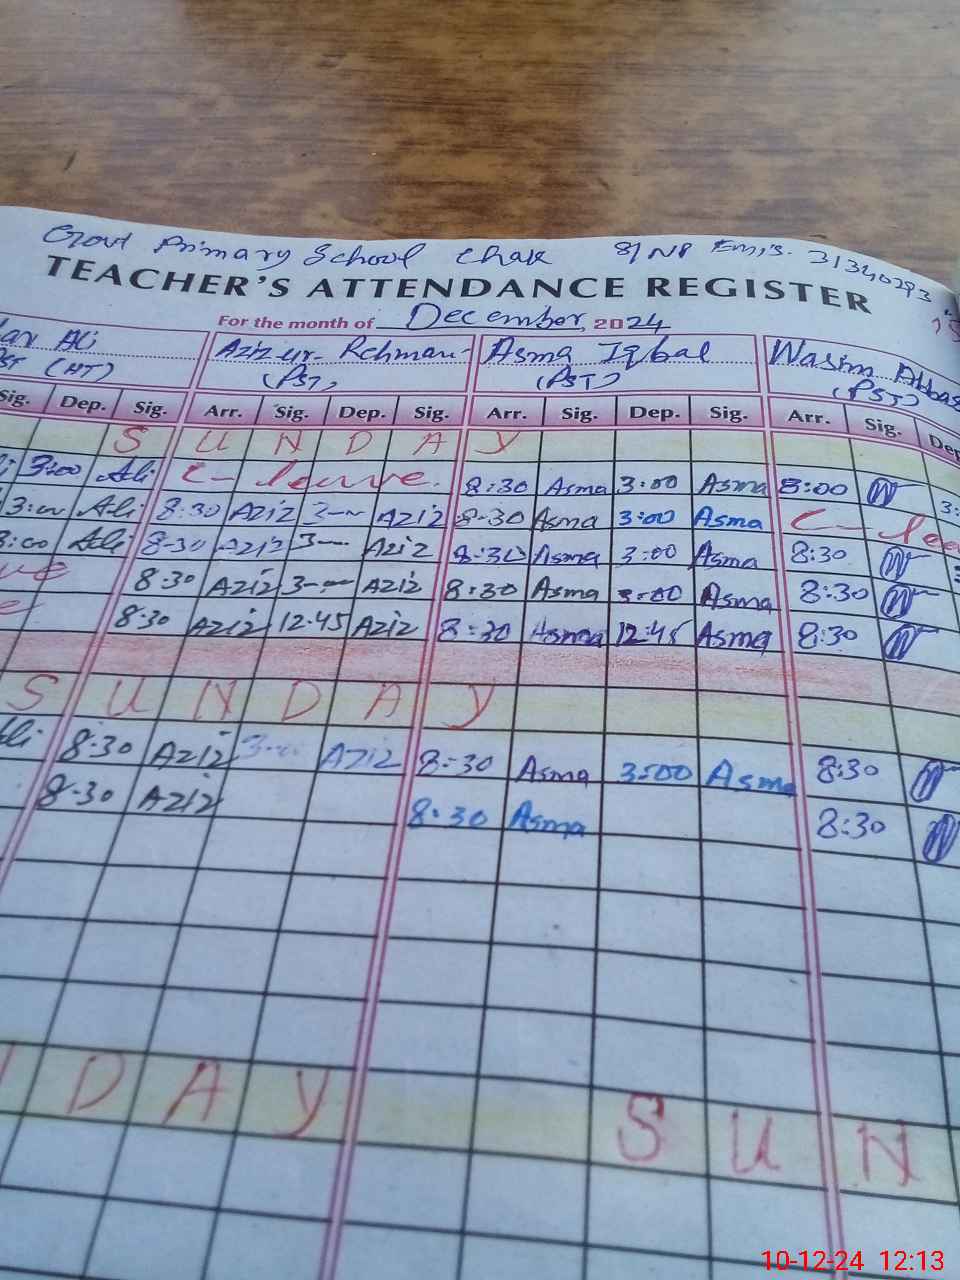 Govt Primary School Chak 8/NP Emis. 31340293
TEACHER'S ATTENDANCE REGISTER
For the month of December, 2024
Ali Aziz-ur-Rehman Asma Iqbal Wasim Abbas
(HT) (PST) (PST) (PST)
Sig. Dep. Sig. Arr. Sig. Dep. Sig. Arr. Sig. Dep. Sig. Arr. Sig. Dep
S U N D A Y
3:00 Ali C- leave. 8:30 Asma 3:00 Asma 8:00
3:00 Ali 8:30 Aziz 3— Aziz 8:30 Asma 3:00 Asma C- lea
3:00 Ali 8-30 Aziz 3— Aziz 8:30 Asma 3:00 Asma 8:30
8:30 Aziz 3— Aziz 8:30 Asma 3:00 Asma 8:30
8:30 Aziz 12.45 Aziz 8:30 Asma 12:45 Asma 8:30
S U N D A Y
8:30 Aziz 3— Aziz 8:30 Asma 3:00 Asma 8:30
8-30 Aziz 8:30 Asma 8:30
D A Y S U N
10-12-24 12:13